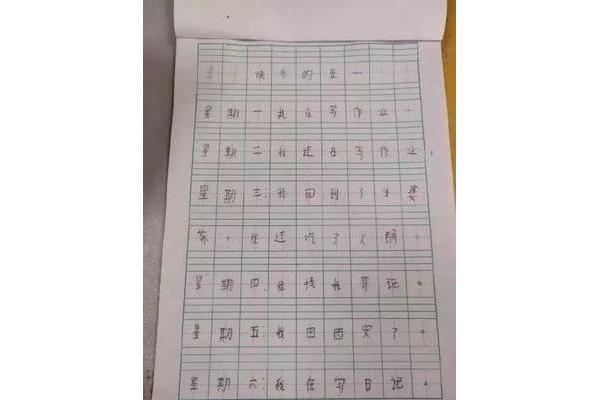 快乐的五一
星期一我在写作业。
星期二我还在写作业。
星期三:我回到了婆
家,我还吃了火锅。
星期四:我找我哥玩。
星期五:我回西安了。
星期六:我在写日记。